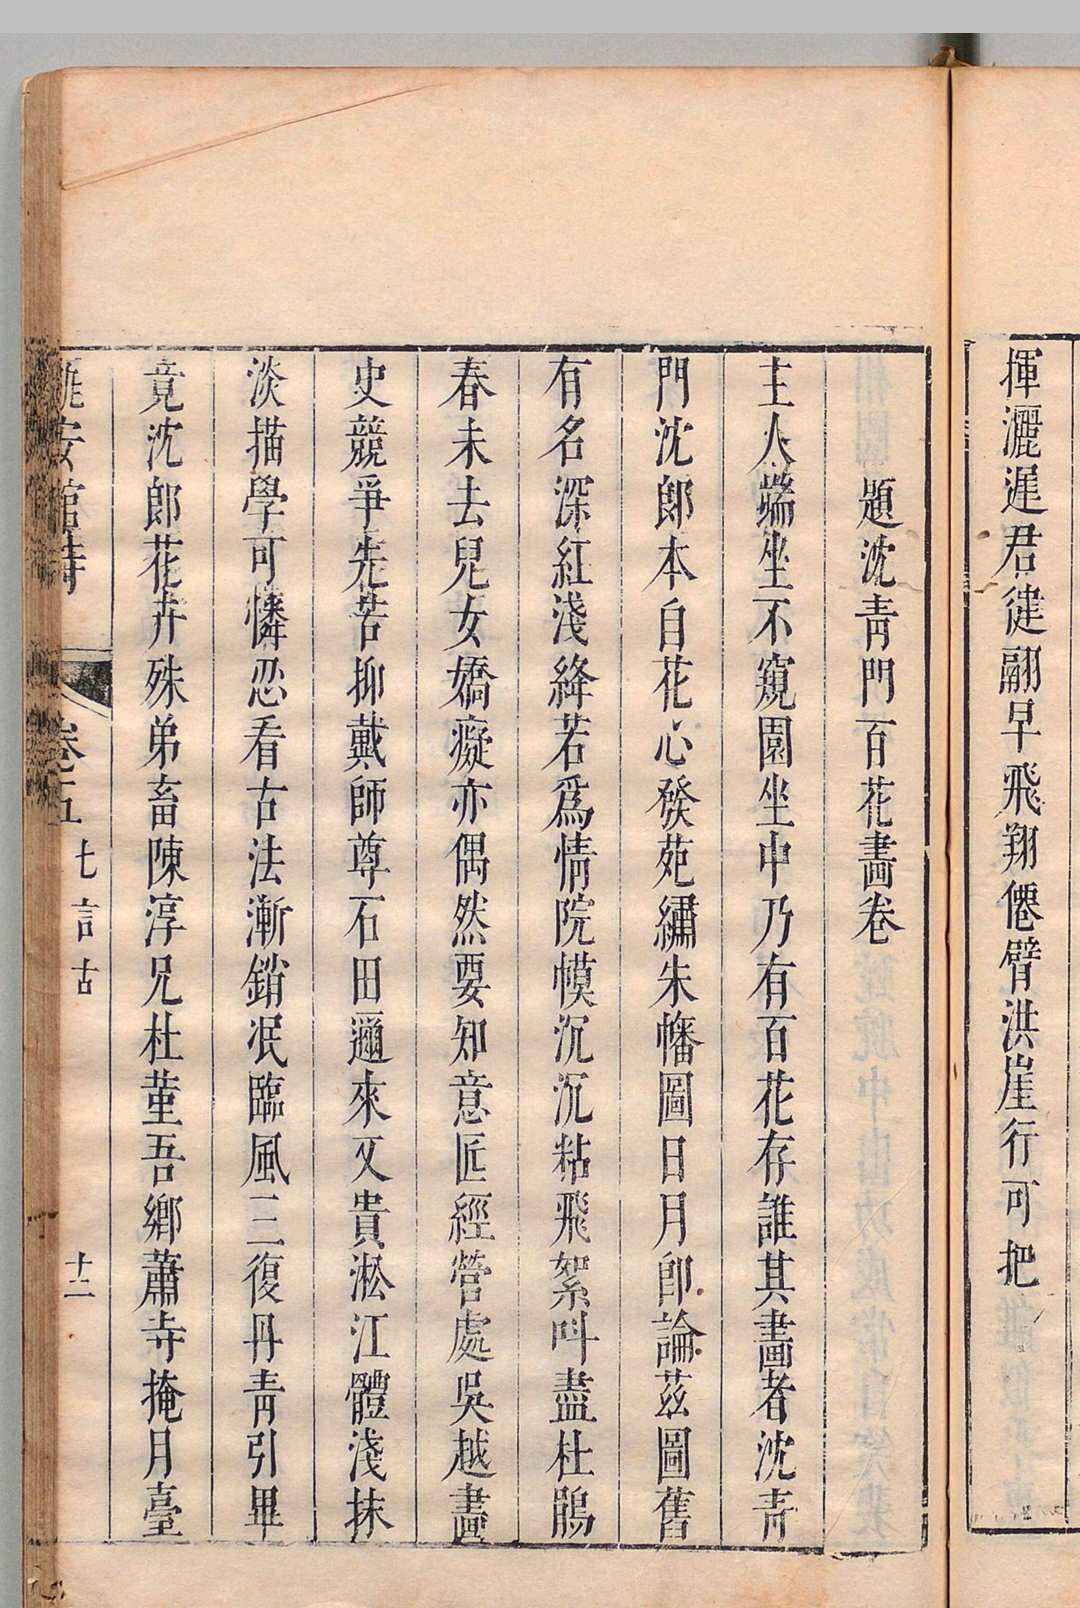 揮灑遲君健翮早飛翔僊臂洪崖行可把
題沈青門百花畫卷
主人端坐不窺園坐中乃有百花存誰其畫者沈青
門沈郎本自花心發苑繡朱幡圖日月卽論茲圖舊
有名深紅淺絳若爲情院幙沉沉粘飛絮叫盡杜鵑
春未去兒女嬌癡亦偶然要知意匠經營處吳越畫
史競爭先苦抑戴師尊石田邇來又貴淞江體淺抹
淡描學可憐忍看古法漸銷泯臨風三復丹青引畢
竟沈郎花卉殊弟畜陳淳兄杜菫吾鄉蕭寺掩月臺
安館詩 卷五 七言古 十二